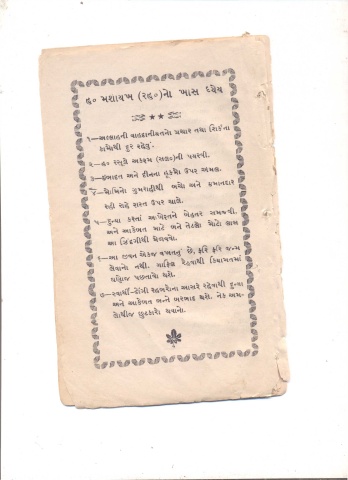 હ૦ મશાયખ (રહ૦)નો ખાસ ધ્યેય
૧—અલ્લાહની વાહદાનીયતનો પ્રચાર તથા શિર્કના
કામોથી દુર રહેવું.
૨—હ૦ રસૂલે અકરમ (સલ૦)ની પયરવી.
૩—ઇબાદત અને દીનના હુકમો ઉપર અમલ.
૪—મોમિનો ગુમરાહીથી બચે અને ઇમાનદાર
રહી રાહે રાસ્ત ઉપર ચાલે.
૫—દુન્યા કરતાં આખિરતને બેહતર સમજવી.
અને આકેબત માટે બને તેટલો મોટો લાભ
આ જિંદગીથી મેળવવો.
૬—આ જીવન એકજ વખતનું છે, ફરિ ફરિ જન્મ
લેવાનો નથી. ગાફિલ રહેવાથી કિયામતમાં
ઘણોજ પછતાવો થશે.
૭—સ્વાર્થી-લોભી રહબરોના આસરે રહેવાથી દુન્યા
અને આકેબત બન્ને બરબાદ થશે. નેક અમ-
લોથીજ છુટકારો થવાનો.